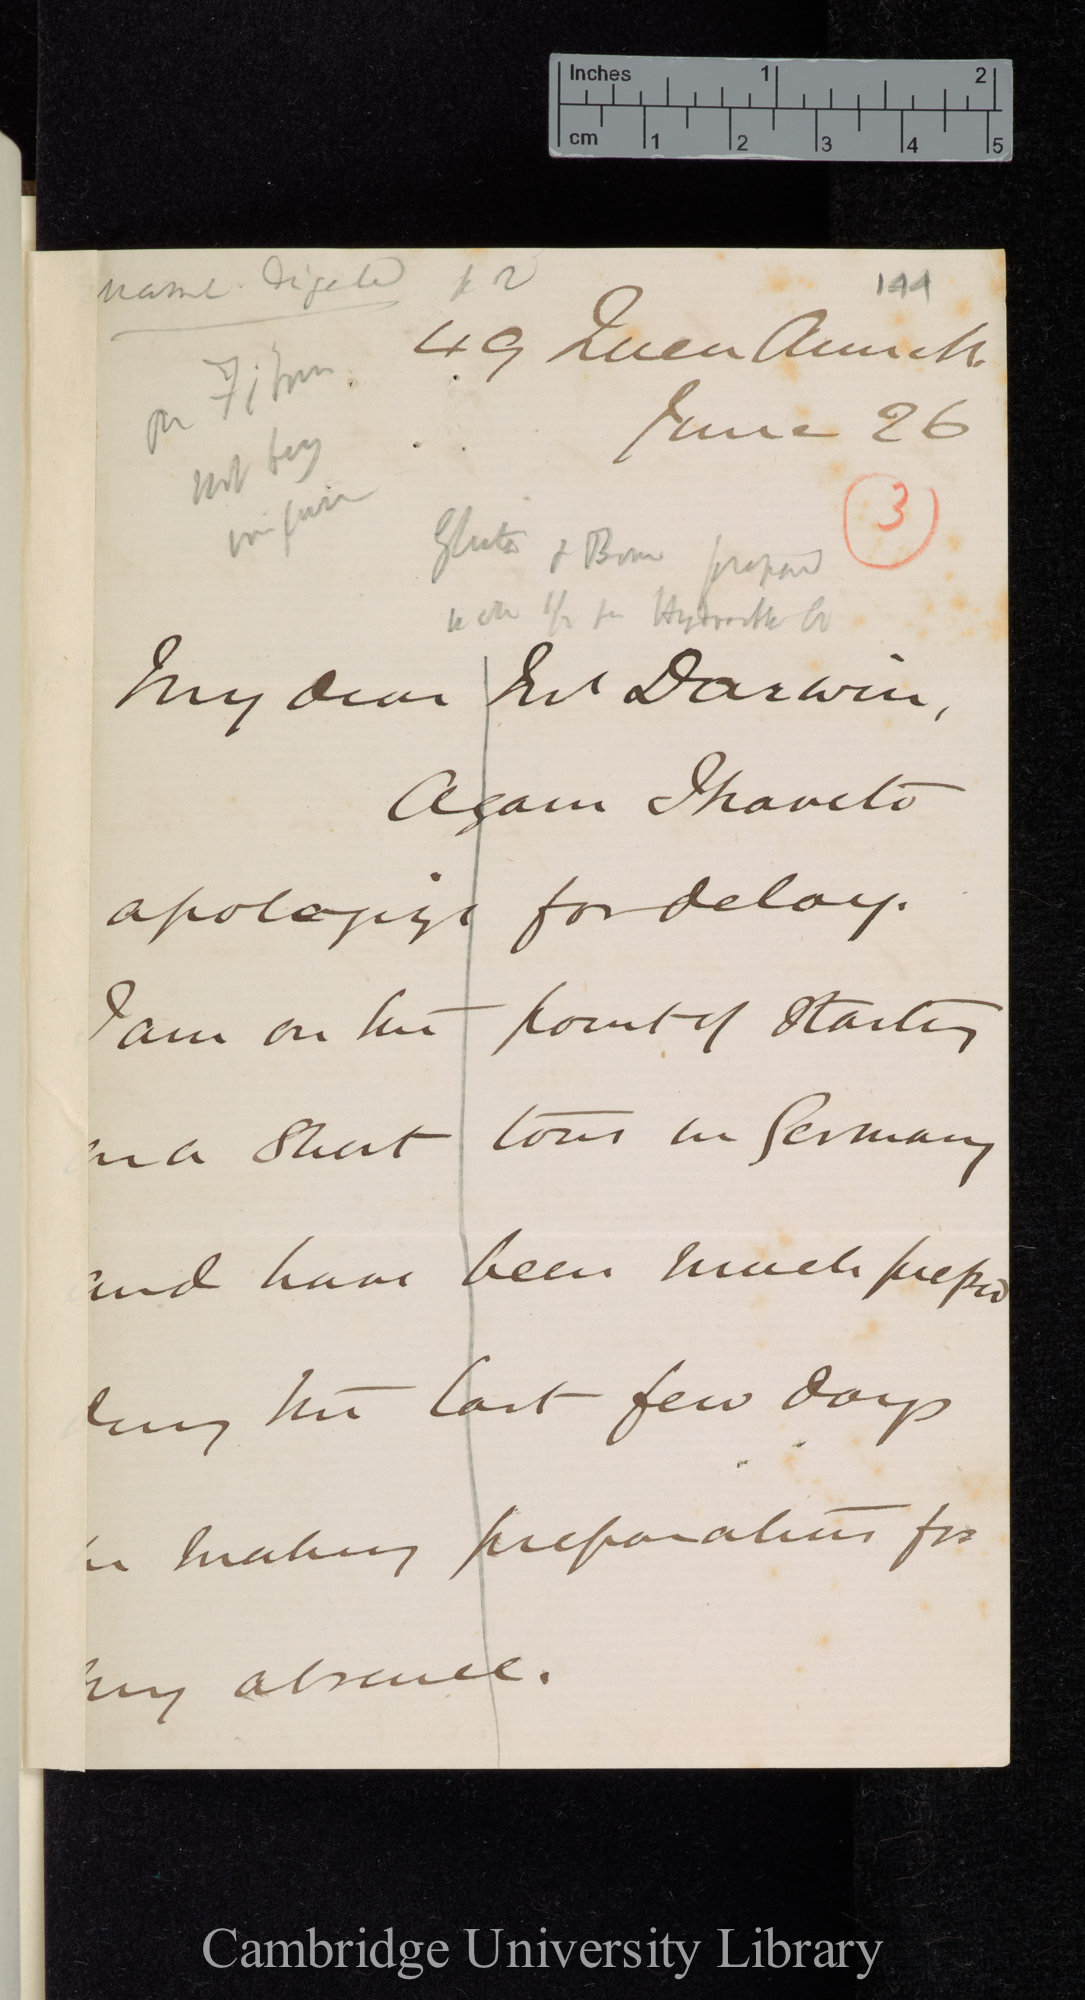 Inches 1 2
cm 1 2 3 4 5
name digested p 2
144
49 Queen Anne St.
on Fibrin
June 26
not being
uniform
3
Gluten & Bone prepared
with Hydrochlc
My dear Mr Darwin,
Again I have to
apologize for delay.
I am on the point of starting
on a short tour in Germany
and have been much pressed
during the last few days
in making preparations for
my absence.
Cambridge University Library